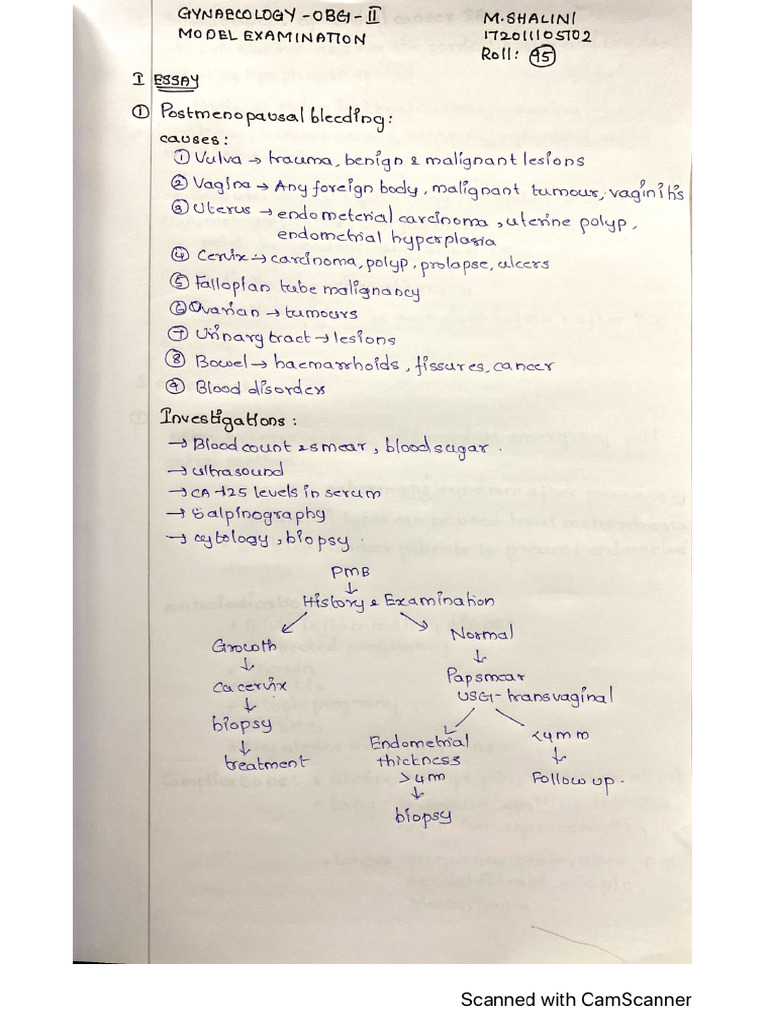 GYNAECOLOGY - OBG - II
MODEL EXAMINATION
M.SHALINI
172011105702
Roll: 95
I ESSAY
① Postmenopausal bleeding:
causes:
① Vulva → trauma, benign & malignant lesions
② Vagina → Any foreign body, malignant tumour, vaginitis
③ Uterus → endometerial carcinoma, uterine polyp,
endometrial hyperplasia
④ Cervix → carcinoma, polyp, prolapse, ulcers
⑤ Fallopian tube malignancy
⑥ Ovarian → tumours
⑦ Urinary tract → lesions
⑧ Bowel → haemarrhoids, fissures, cancer
⑨ Blood disorders
Investigations:
→ Blood count & smear, blood sugar.
→ ultrasound
→ CA-125 levels in serum
→ Salpinography
→ cytology, biopsy.
PMB
↓
History & Examination
↙ ↘
Growth
↓
Ca cervix
↓
biopsy
↓
treatment
Normal
↓
Papsmear
USG - transvaginal
↙ ↘
Endometrial
thickness
>4mm
↓
biopsy
<4mm
↓
Follow up.
Scanned with CamScanner